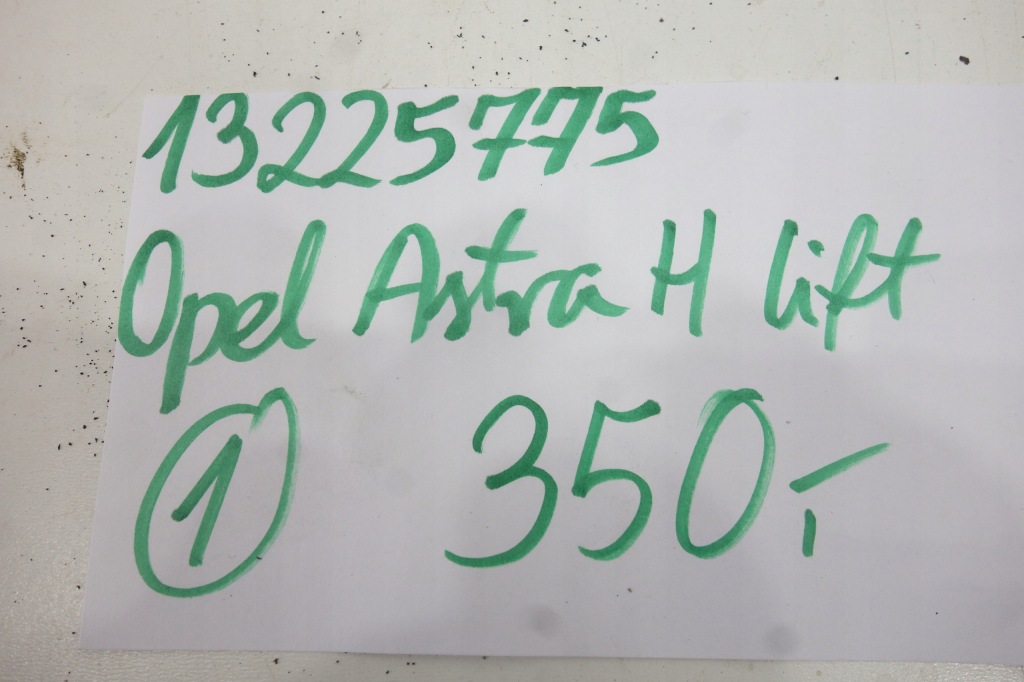 13225775
Opel Astra H lift
1 350,-